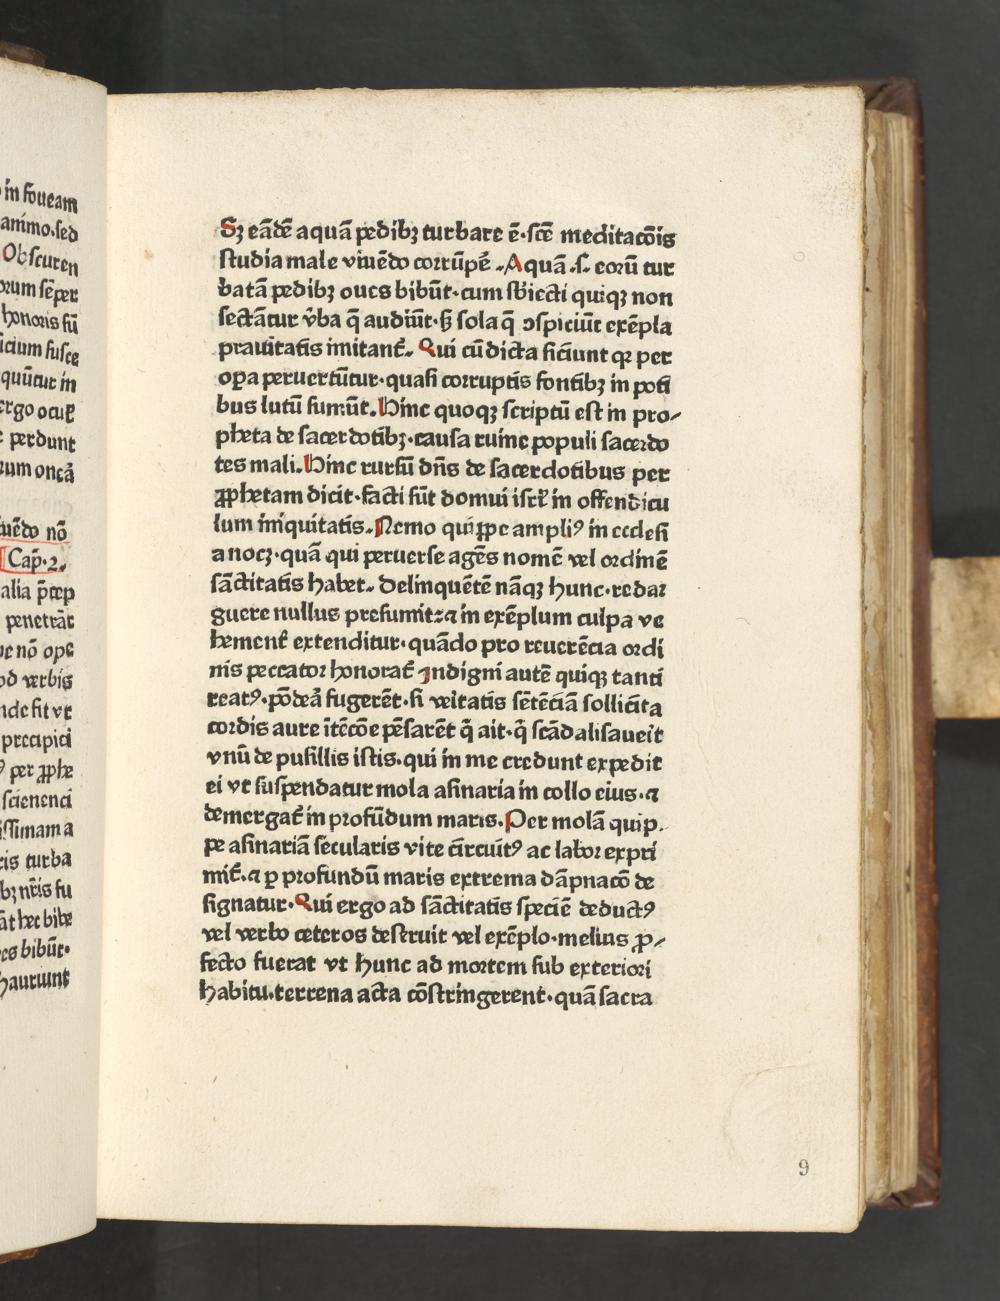 in foueam
animo.sed
Obscuren
orum sēper
honoris fū
icium susce
quūtur in
ergo ocul
perdunt
rum oncā
uēdo nō
Cap̄.2.
alia p̄cep
penetrāt
nō ope
verbis
nde fit vt
precipici
per ꝓphe
scienenci
issimam a
ris turba
bꝫ nr̄is fu
āt hec bibe
es bibūt·
hauriunt
Sꝫ eādē aquā pedibꝫ turbare ē·scē meditacōis
studia male viuēdo corrūpē.Aquā.s. eorū tur
batā pedibꝫ oues bibūt·cum sb̄iecti quiqꝫ non
sectātur v̄ba q̄ audiūt·sꝫ sola q̄ ɔspiciūt exēpla
prauitatis imitant̄.Qui cū dicta siciunt qꝛ per
oꝑa peruertūtur·quasi corruptis fontibꝫ in poti
bus lutū sumūt.Hinc quoqꝫ scriptū est in pro⸗
pheta de sacerdotibꝫ·causa ruine populi sacerdo
tes mali.Hinc rursū dn̄s de sacerdotibus per
ꝓphetam dicit·facti sūt domui isrl̄ in offendicu
lum iniquitatis.Nemo quiꝑpe ampliꝰ in ecclesi
a nocꝫ·quā qui peruerse agēs nomē vel ordinē
sāctitatis habet.Delinquētē nāqꝫ hunc·redar
guere nullus presumit:⁊ in exēplum culpa ve
hement̄ extenditur·quādo pro reuerēcia ordi
nis peccator honorat̄ Indigni autē quiqꝫ tanti
reatꝰ·pōdeā fugerēt·si veitatis sētēciā sollicita
cordis aure ītēcōe pēsarēt q̄ ait·q̄ scādalisaueit
vnū de pusillis istis.qui in me credunt expedit
ei vt suspendatur mola asinaria in collo eius·⁊
demergat̄ in profūdum maris.Per molā quip.
pe asinariā secularis vite circuitꝰ ac labor expri
mit̄.⁊ ꝑ profundū maris extrema dāpnacō de
signatur·Qui ergo ad sāctitatis speciē deductꝰ
vel verbo ceteros deseruit vel exēplo·melius ꝓ⸗
fecto fuerat vt hunc ad mortem sub exteriori
habitu.terrena acta cōstringerent·quā sacra
9